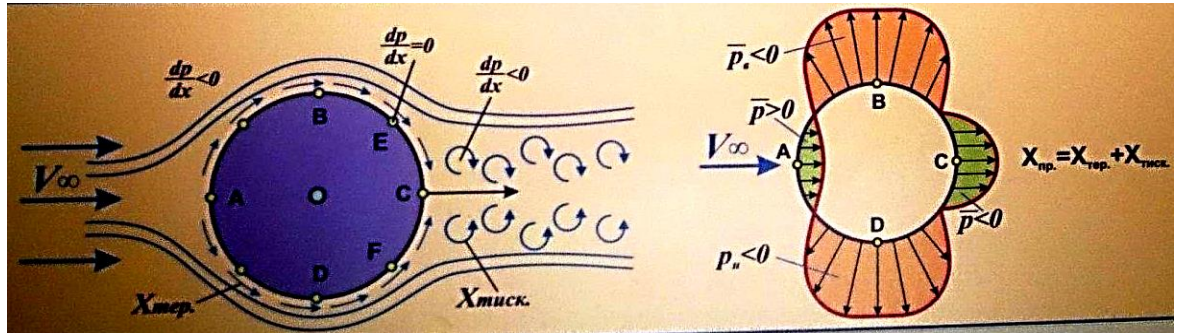 dp/dx<0
dp/dx=0
dp/dx<0
V∞
A
B
E
C
O
F
D
Xтер.
Xтиск.
p̅в<0
p̅>0
V∞
A
B
C
D
p̅<0
pн<0
Xпр.=Xтер.+Xтиск.